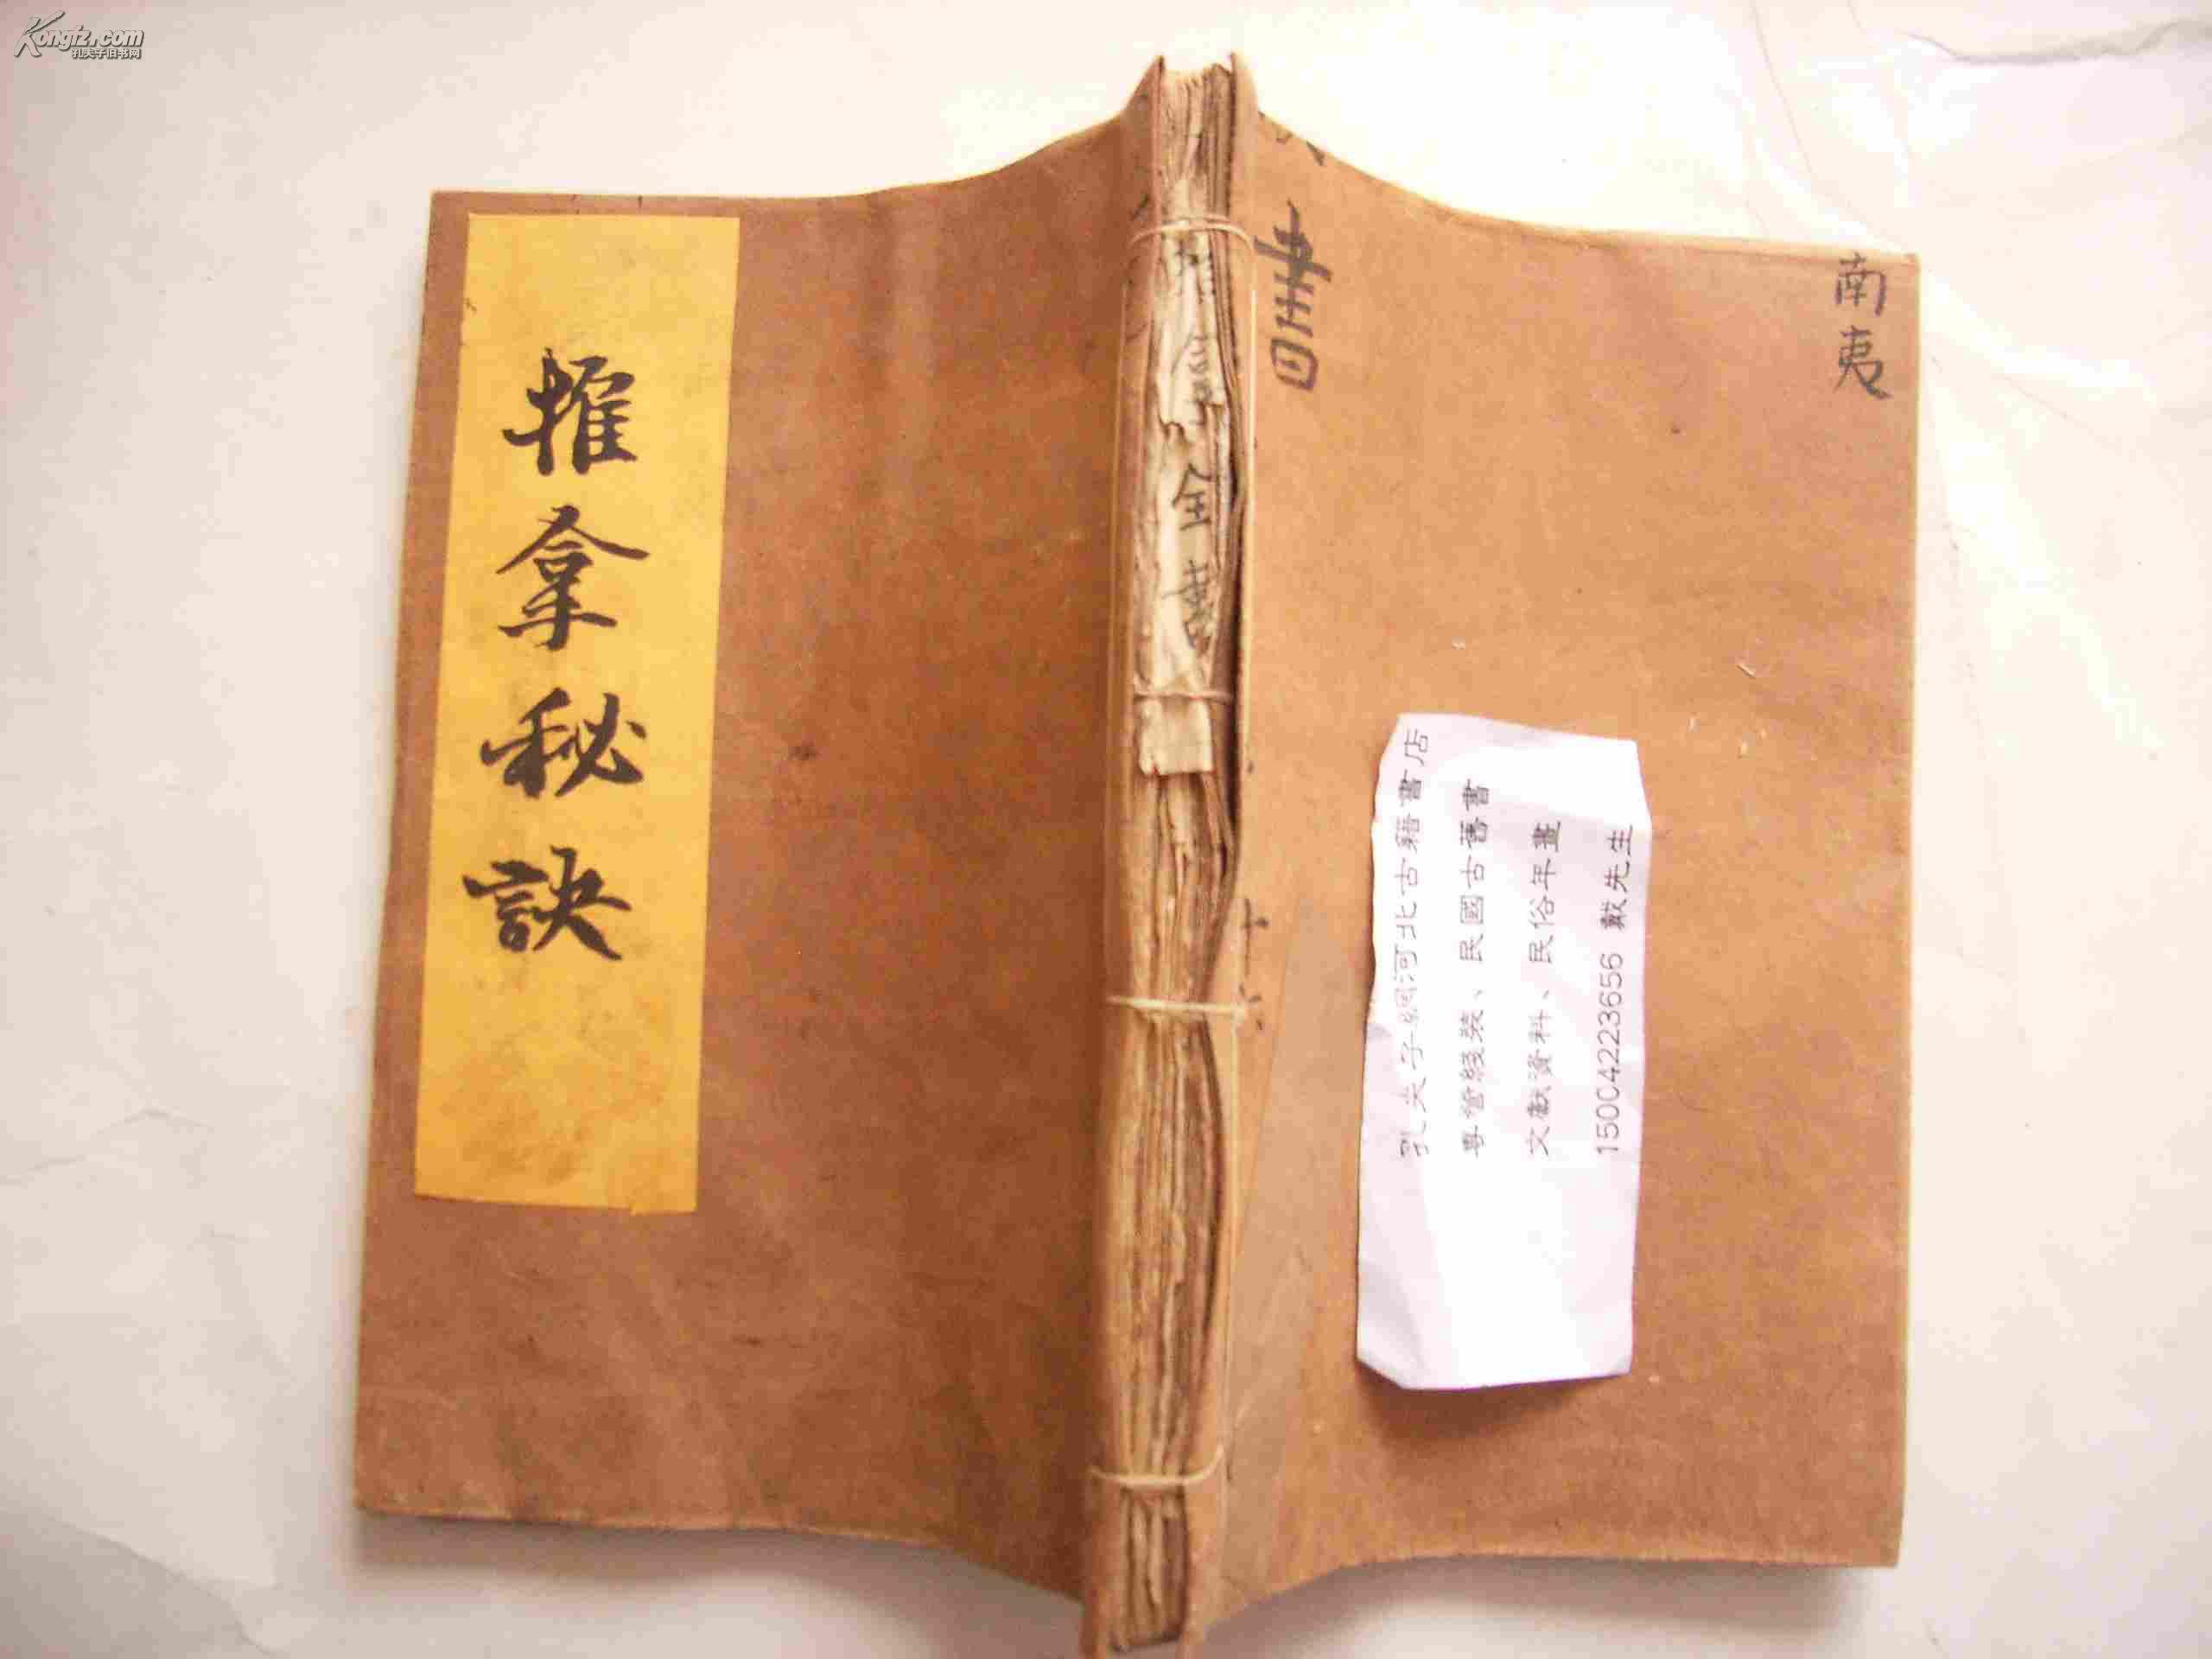 Kongfz.com
孔夫子旧书网
推拿秘訣
全書
書
南夷
十六
孔夫子舊書網河北古籍書店
專營綫裝、民國古舊書
文獻資料、民俗年畫
15004223656 戴先生